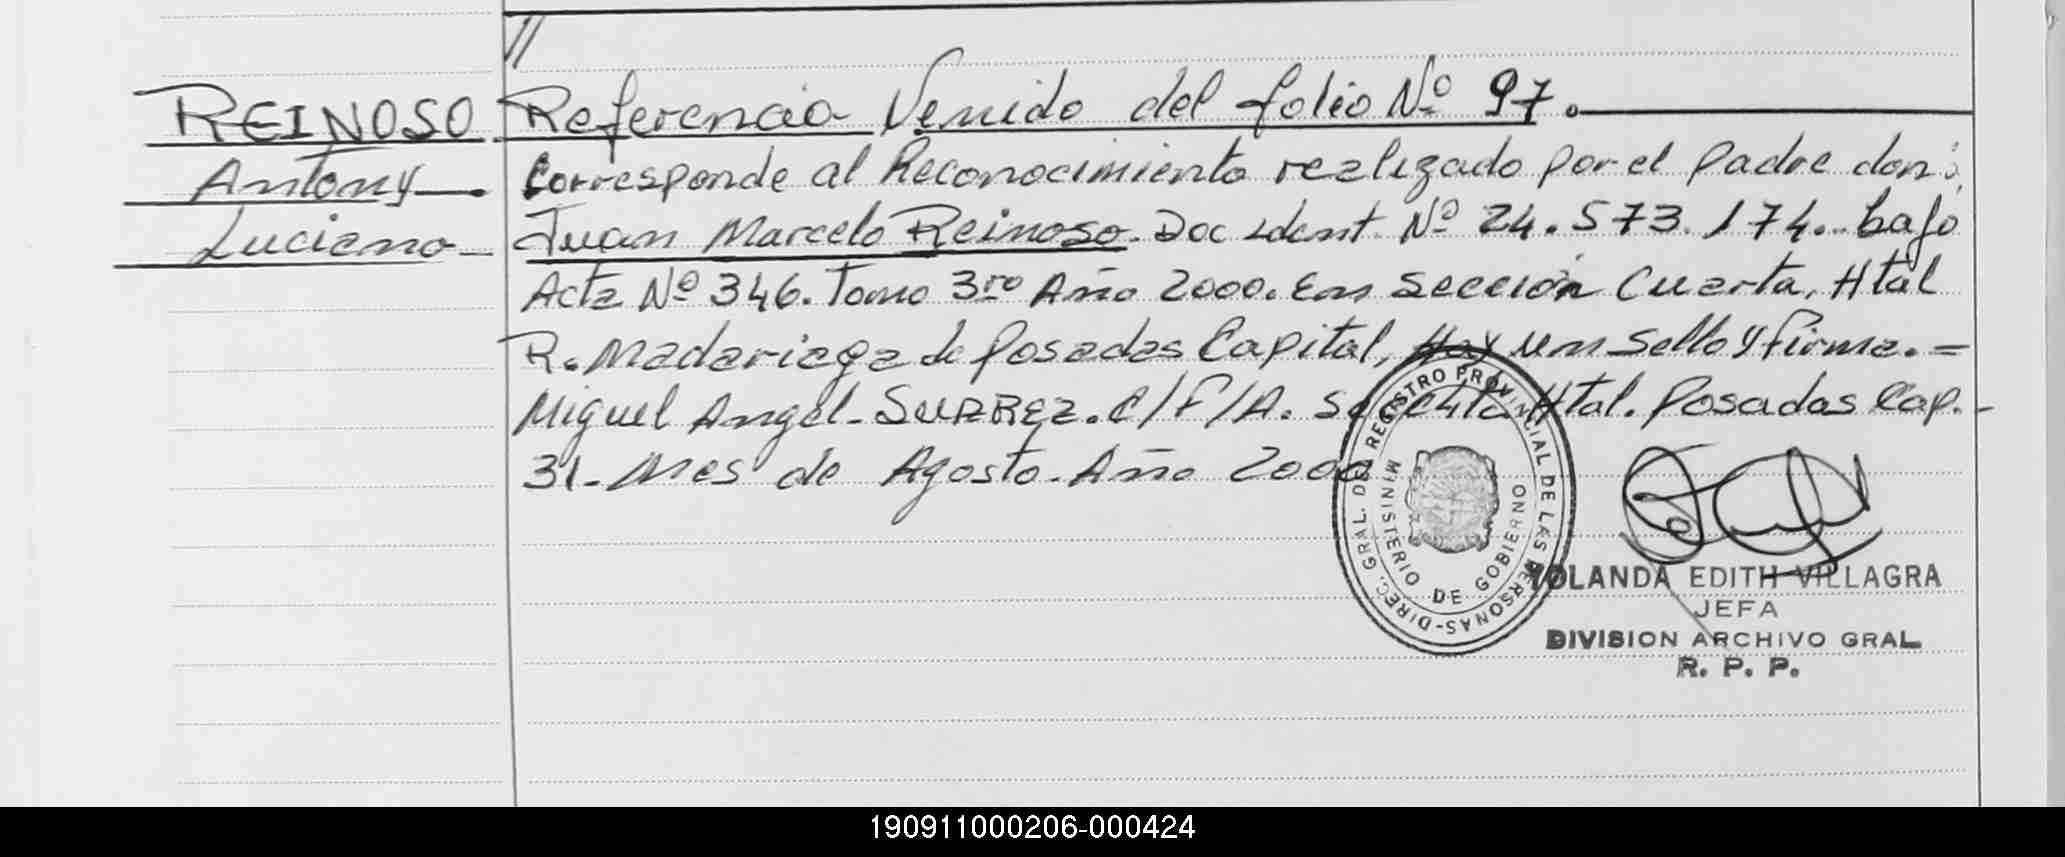 //
REINOSO
Antony
Luciano
Referencia Venido del folio Nº 97.
Corresponde al Reconocimiento realizado por el padre don:
Juan Marcelo Reinoso. Doc ident. Nº 24.573.174. bajo
Acta Nº 346. Tomo 3ro Año 2000. En Sección Cuarta, Htal
R. Madariaga de Posadas Capital, Hay un Sello y firma. =
Miguel Angel - SUAREZ. C/F/A. Sec. 4ta Htal. Posadas Cap. -
31 - Mes de Agosto - Año 2000
DIREC. GRAL. DEL REGISTRO PROVINCIAL DE LAS PERSONAS-
MINISTERIO DE GOBIERNO
YOLANDA EDITH VILLAGRA
JEFA
DIVISION ARCHIVO GRAL
R. P. P.
190911000206-000424